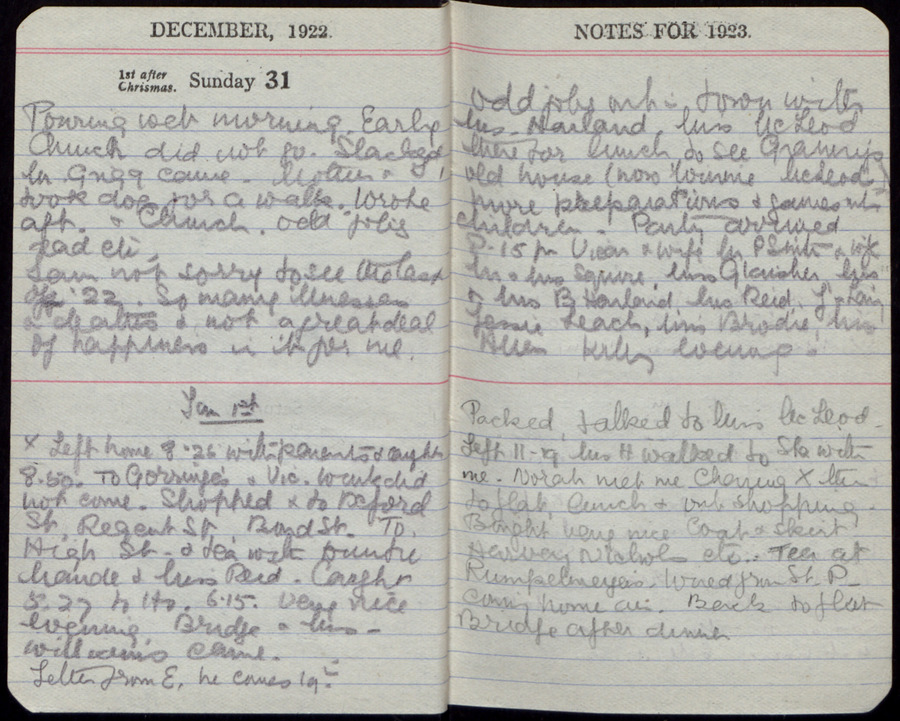 DECEMBER, 1922.
1st after Chrismas. Sunday 31
Pouring wet morning. Early
Church did not go. Slacked
Mr Grigg came. Mother &
took dog for a walk. Wrote
aft. & Church. odd jobs
read etc.
I am not sorry to see the last
of '22. So many illnesses
& deaths & not a great deal
of happiness in it for me.
Jan 1st
X Left home 8.26 with parents & caught
8.50. To Gorringes & Vic.
not come. Shopped & to Oxford
St, Regent St, Bond St. To
High St. & tea with Auntie
Maude & Miss Reid. Caught
5.27 to 6.15. Very nice
evening, Bridge & Miss
Williams came.
Letter from E, he comes 19th
NOTES FOR 1923.
odd jobs in town with
Mrs. Harland, Miss McLeod
there for lunch to see Granny's
old house (now Winnie McLeod's)
more preparations & games with
children. Party arrived
8.15 pm Vicar & wife Mr P Smith & wife
Mr & Mrs Squire, Miss Glaisher, Mrs
& Miss B Harland Miss Reid,
Jessie Leach, Miss Brodie, Miss
Allen jolly evening.
Packed, talked to Miss McLeod.
Left 11-19 Mrs H walked to Sta with
me. Norah met me Charing X then
to flat, lunch & out shopping.
Bought very nice Coat & Skirt
Harvey Nichols etc.. Tea at
Rumpelmeyers. Wired from St. P
coming home etc. Back to flat
Bridge after dinner